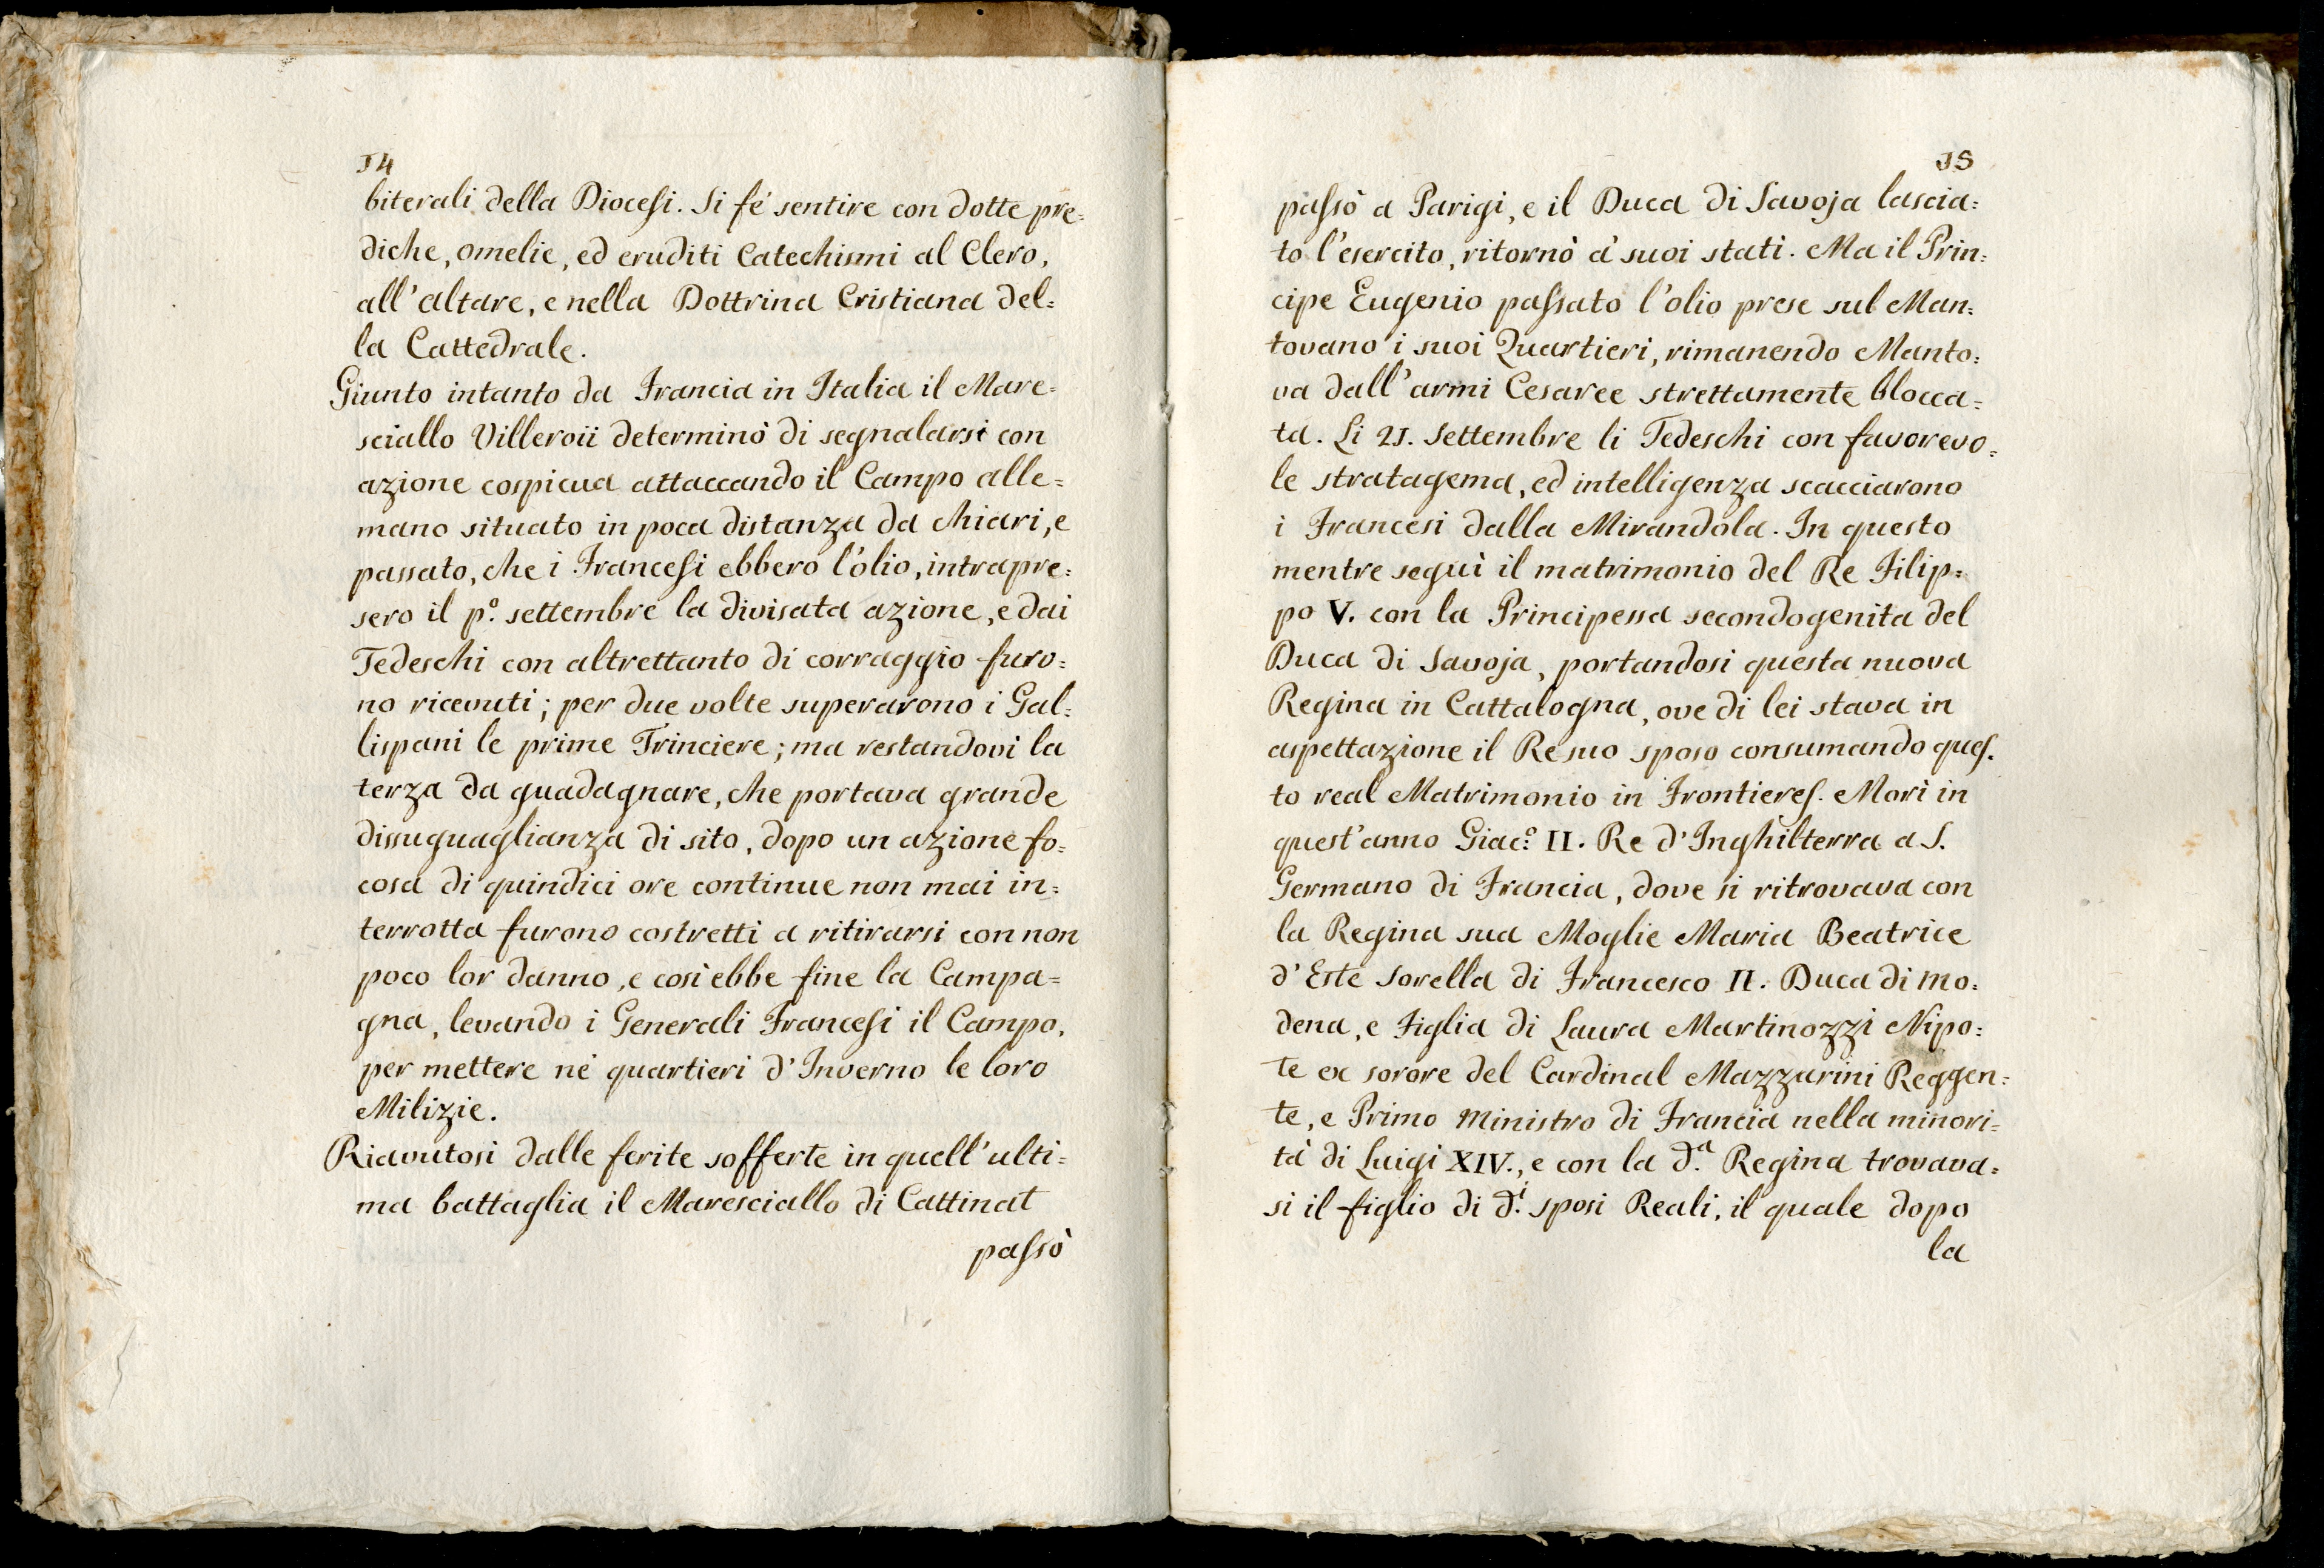 14
biterali della Diocesi. Si fé sentire con dotte pre=
diche, omelie, ed eruditi Catechismi al Clero,
all'altare, e nella Dottrina Cristiana del=
la Cattedrale.
Giunto intanto da Francia in Italia il Mare=
sciallo Villeroii determinò di segnalarsi con
azione cospicua attaccando il Campo alle=
mano situato in poca distanza da Chiari, e
passato, che i Francesi ebbero l'olio, intrapre=
sero il p.º settembre la divisata azione, e dai
Tedeschi con altrettanto di corraggio furo=
no ricevuti; per due volte superarono i Gal=
lispani le prime Trinciere; ma restandovi la
terza da guadagnare, che portava grande
dissuguaglianza di sito, dopo un azione fo=
cosa di quindici ore continue non mai in=
terrotta furono costretti a ritirarsi con non
poco lor danno, e così ebbe fine la Campa=
gna, levando i Generali Francesi il Campo,
per mettere né quartieri d'Inverno le loro
Milizie.
Riavutosi dalle ferite sofferte in quell'ulti=
ma battaglia il Maresciallo di Cattinat
passò
15
passò a Parigi, e il Duca di Savoja lascia=
to l'esercito, ritornò a' suoi stati. Ma il Prin=
cipe Eugenio passato l'olio prese sul Man=
tovano i suoi Quartieri, rimanendo Manto=
va dall'armi Cesaree strettamente blocca=
ta. Li 21. Settembre li Tedeschi con favorevo=
le stratagema, ed intelligenza scacciarono
i Francesi dalla Mirandola. In questo
mentre seguì il matrimonio del Re Filip=
po V. con la Principessa secondogenita del
Duca di Savoja, portandosi questa nuova
Regina in Cattalogna, ove di lei stava in
aspettazione il Re suo sposo consumando ques.
to real Matrimonio in Frontieres. Morì in
quest'anno Giac.º II. Re d'Inghilterra a S.
Germano di Francia, dove si ritrovava con
la Regina sua Moglie Maria Beatrice
d'Este Sorella di Francesco II. Duca di Mo=
dena, e Figlia di Laura Martinozzi Nipo=
te ex sorore del Cardinal Mazzarini Reggen=
te, e Primo Ministro di Francia nella minori=
tà di Luigi XIV., e con la d.ª Regina trovava=
si il figlio di d.i sposi Reali, il quale dopo
la